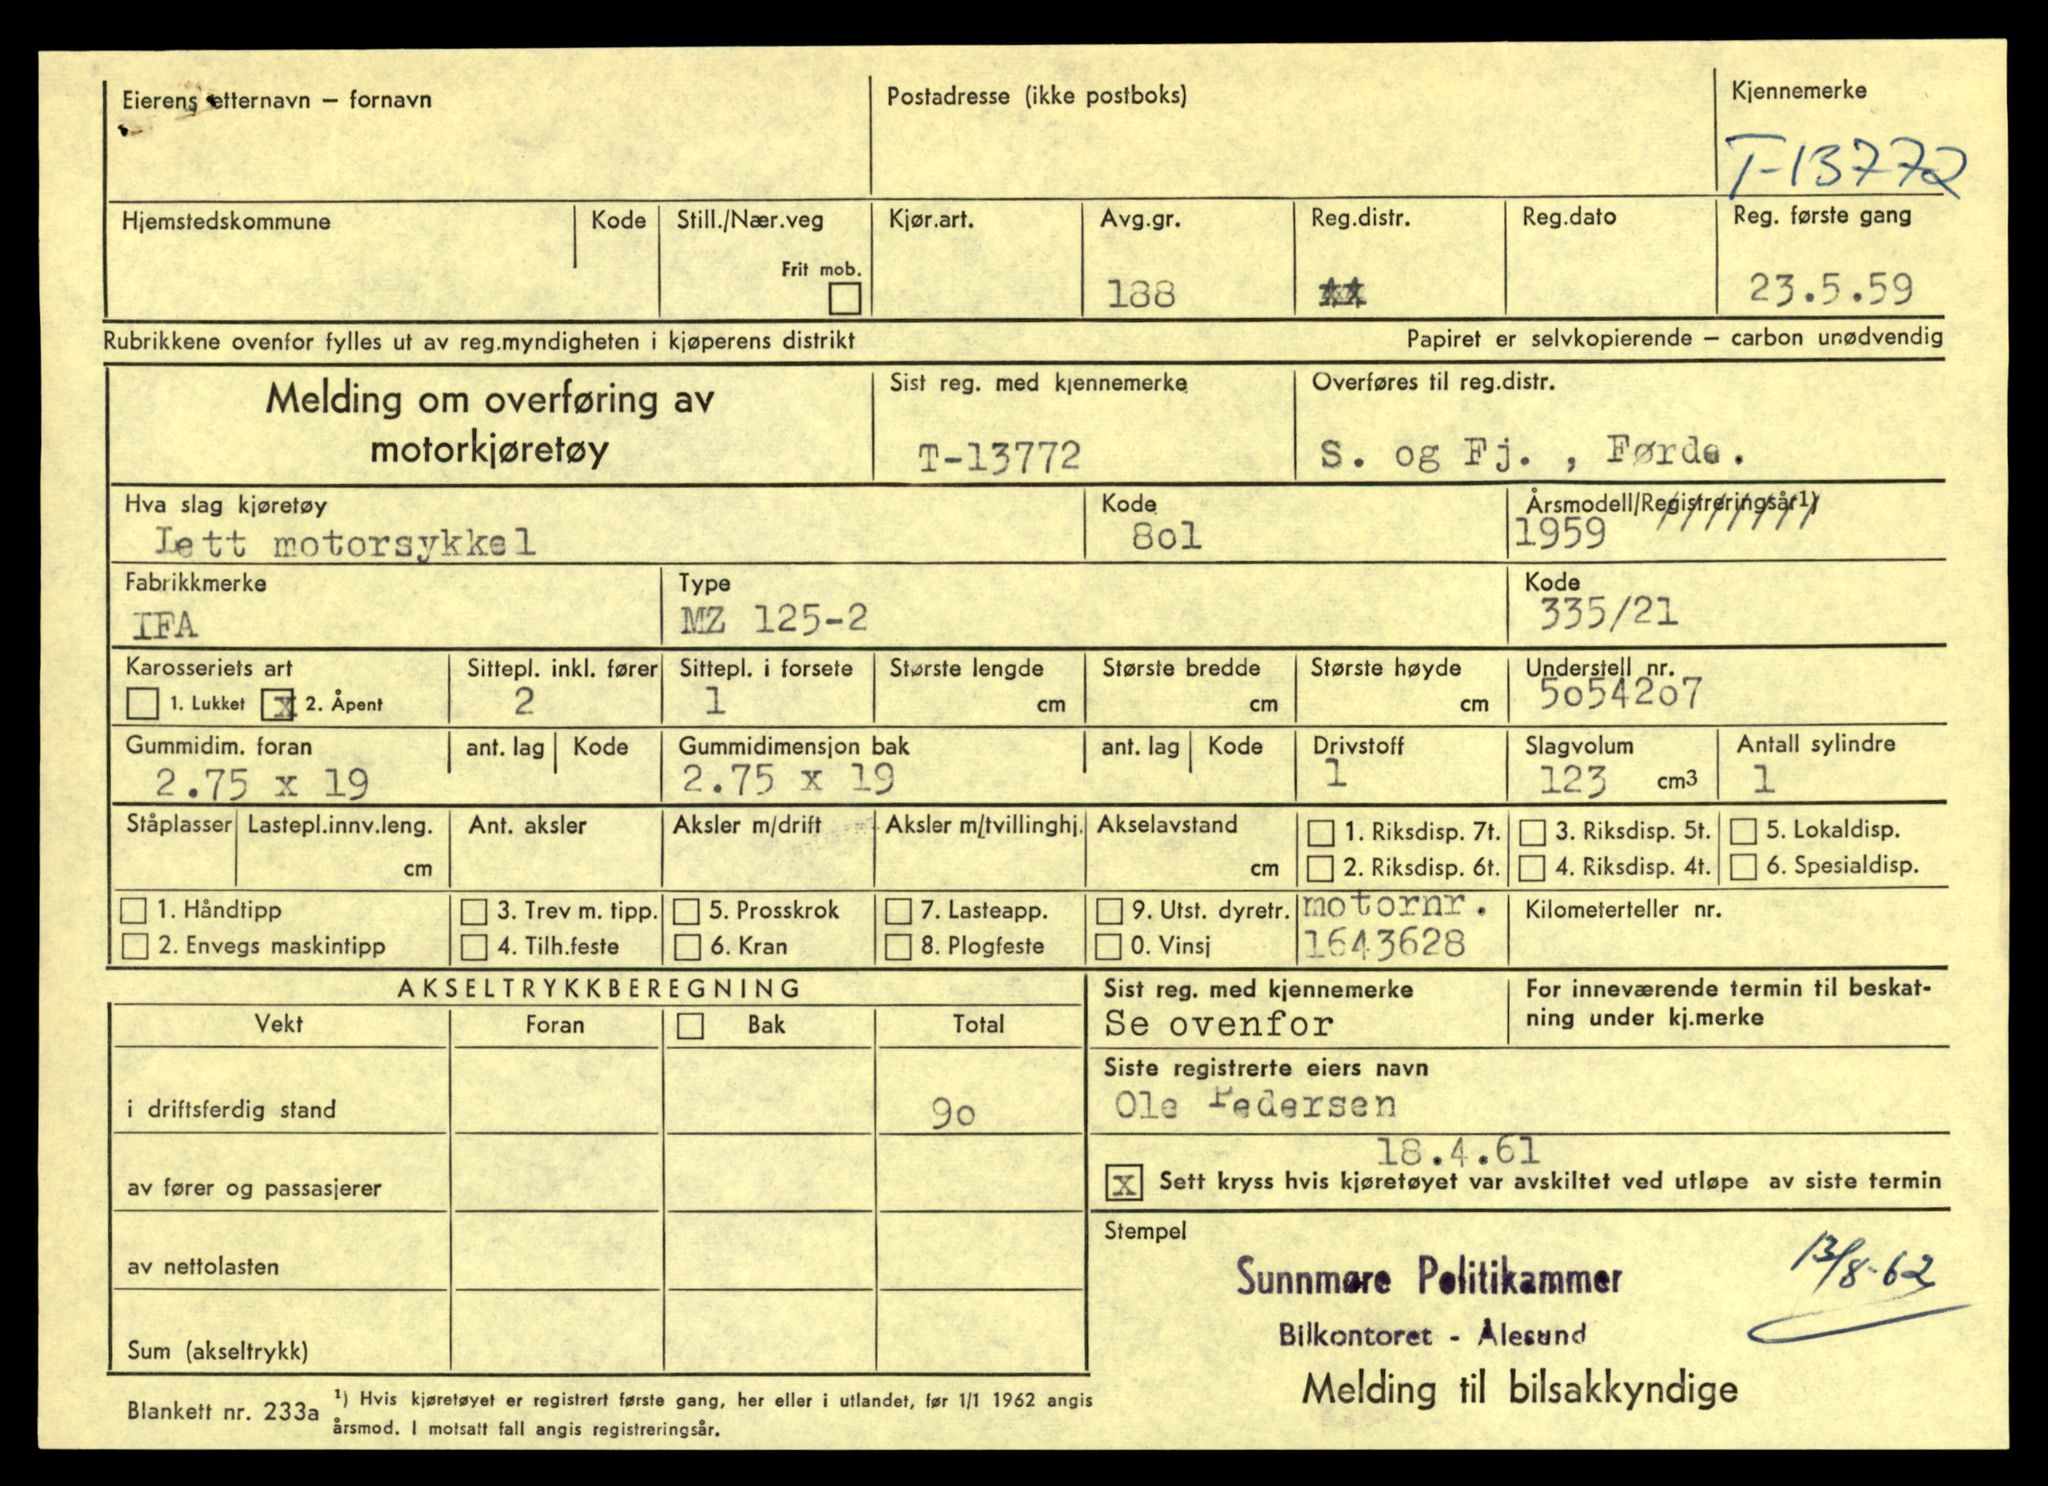 Eierens etternavn – fornavn
Postadresse (ikke postboks)
Kjennemerke
T-13772
Hjemstedskommune
Kode
Still./Nær.veg
Frit mob.
Kjør.art.
Avg.gr.
188
Reg.distr.
Reg.dato
Reg. første gang
23.5.59
Rubrikkene ovenfor fylles ut av reg.myndigheten i kjøperens distrikt
Papiret er selvkopierende – carbon unødvendig
Melding om overføring av
motorkjøretøy
Sist reg. med kjennemerke
T-13772
Overføres til reg.distr.
S. og Fj. , Førde.
Hva slag kjøretøy
Lett motorsykkel
Kode
8o1
Årsmodell/Registreringsår1)
1959
Fabrikkmerke
IFA
Type
MZ 125-2
Kode
335/21
Karosseriets art
1. Lukket x 2. Åpent
Sittepl. inkl. fører
2
Sittepl. i forsete
1
Største lengde
cm
Største bredde
cm
Største høyde
cm
Understell nr.
5o542o7
Gummidim. foran
2.75 x 19
ant. lag
Kode
Gummidimensjon bak
2.75 x 19
ant. lag
Kode
Drivstoff
1
Slagvolum
123 cm3
Antall sylindre
1
Ståplasser
Lastepl.innv.leng.
cm
Ant. aksler
Aksler m/drift
Aksler m/tvillinghj.
Akselavstand
cm
1. Riksdisp. 7t.
2. Riksdisp. 6t.
3. Riksdisp. 5t.
4. Riksdisp. 4t.
5. Lokaldisp.
6. Spesialdisp.
1. Håndtipp
2. Envegs maskintipp
3. Trev m. tipp.
4. Tilh.feste
5. Prosskrok
6. Kran
7. Lasteapp.
8. Plogfeste
9. Utst. dyretr.
0. Vinsj
motornr.
1643628
Kilometerteller nr.
AKSELTRYKKBEREGNING
Vekt
Foran
Bak
Total
i driftsferdig stand
9o
av fører og passasjerer
av nettolasten
Sum (akseltrykk)
Sist reg. med kjennemerke
Se ovenfor
For inneværende termin til beskat-
ning under kj.merke
Siste registrerte eiers navn
Ole Pedersen
18.4.61
x Sett kryss hvis kjøretøyet var avskiltet ved utløpe av siste termin
Stempel
Sunnmøre Politikammer
Bilkontoret - Ålesund
13/8-62
Melding til bilsakkyndige
Blankett nr. 233a
1) Hvis kjøretøyet er registrert første gang, her eller i utlandet, før 1/1 1962 angis
årsmod. I motsatt fall angis registreringsår.